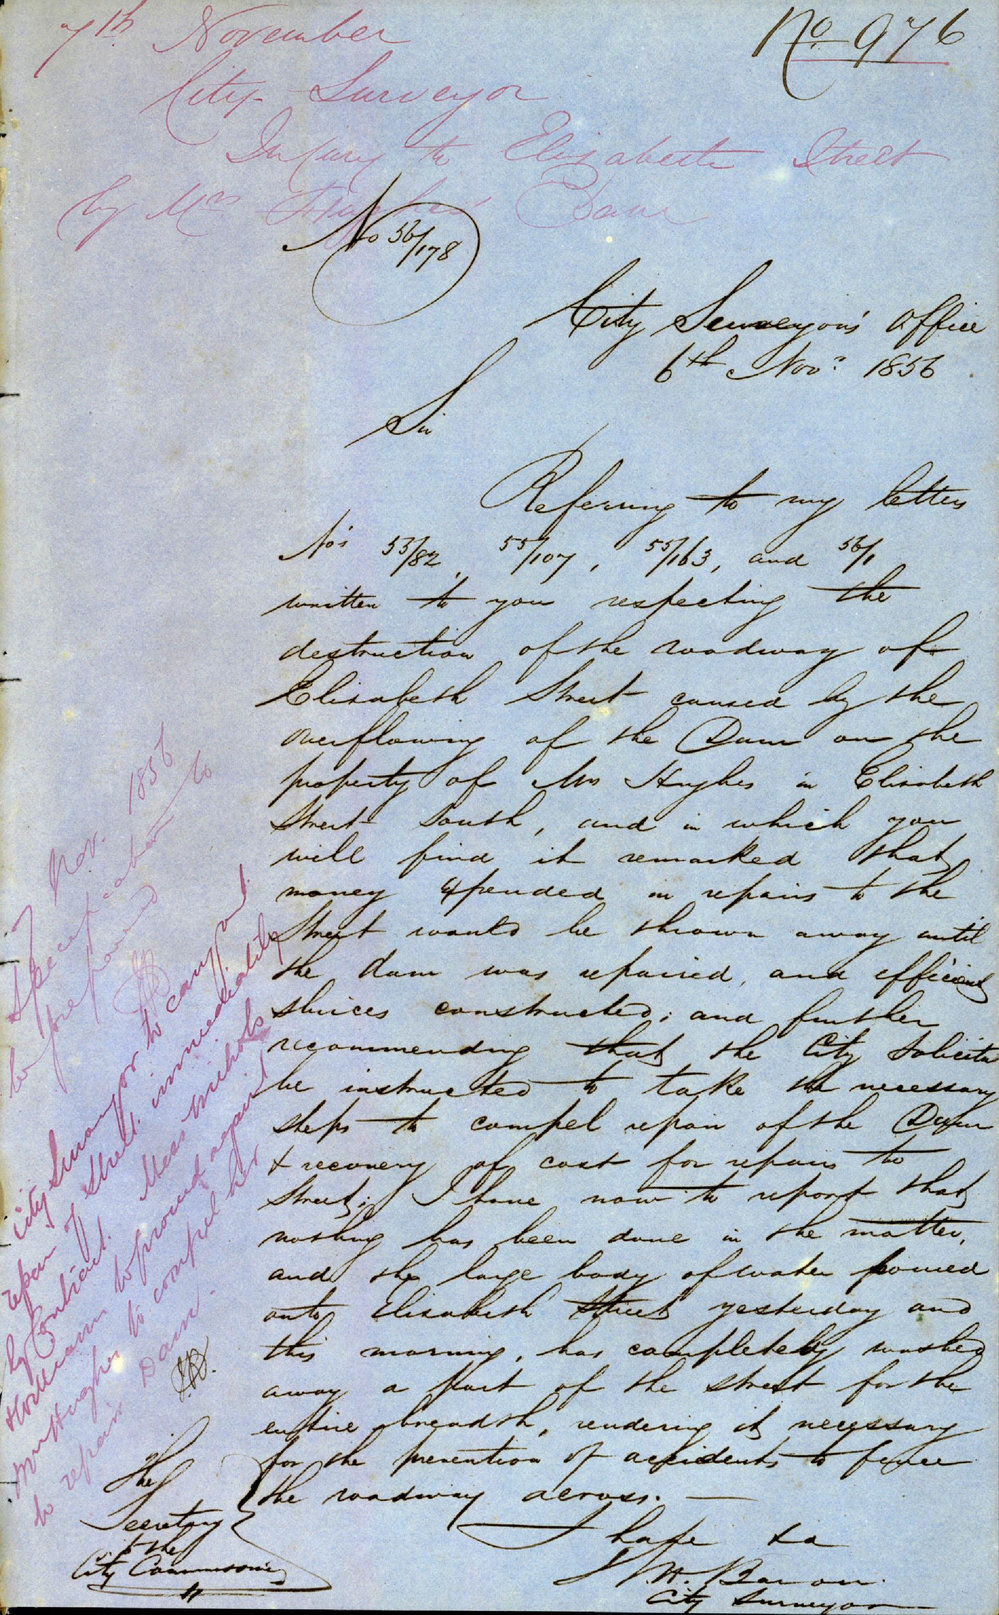 No 976
7th November
City Surveyor
Injury to Elizabeth Street
by Mrs Dam
No 56/178
City Surveyor's Office
6th Novr 1856
Sir
Referring to my letters
Nos 53/82, 55/107, 55/163, and 56/1
written to you respecting the
destruction of the roadway of
Elizabeth Street caused by the
overflowing of the Dam on the
property of Mrs Hughes in Elizabeth
Street South, and in which you
will find it remarked that
money expended in repairs to the
Street would be thrown away until
the dam was repaired, and efficient
sluices constructed; and further
recommending that the City Solicitor
be instructed to take the necessary
steps to compel repair of the Dam
& recovery of cost for repairs to
Street; I have now to report that
nothing has been done in the matter,
and the large body of water poured
onto Elizabeth Street yesterday and
this morning, has completely washed
away a part of the street for the
entire breadth, rendering it necessary
for the prevention of accidents to fence
the roadway across. —
I have &a
City Surveyor
The
Secretary
to the
City Commissioners
7 Nov. 1856
Specification to
be prepared
City Surveyor to carry out
repair of Street immediately
by Contract. Mess Nichols
& Williams to proceed against
Mrs Hughes to compel her
to repair Dam.